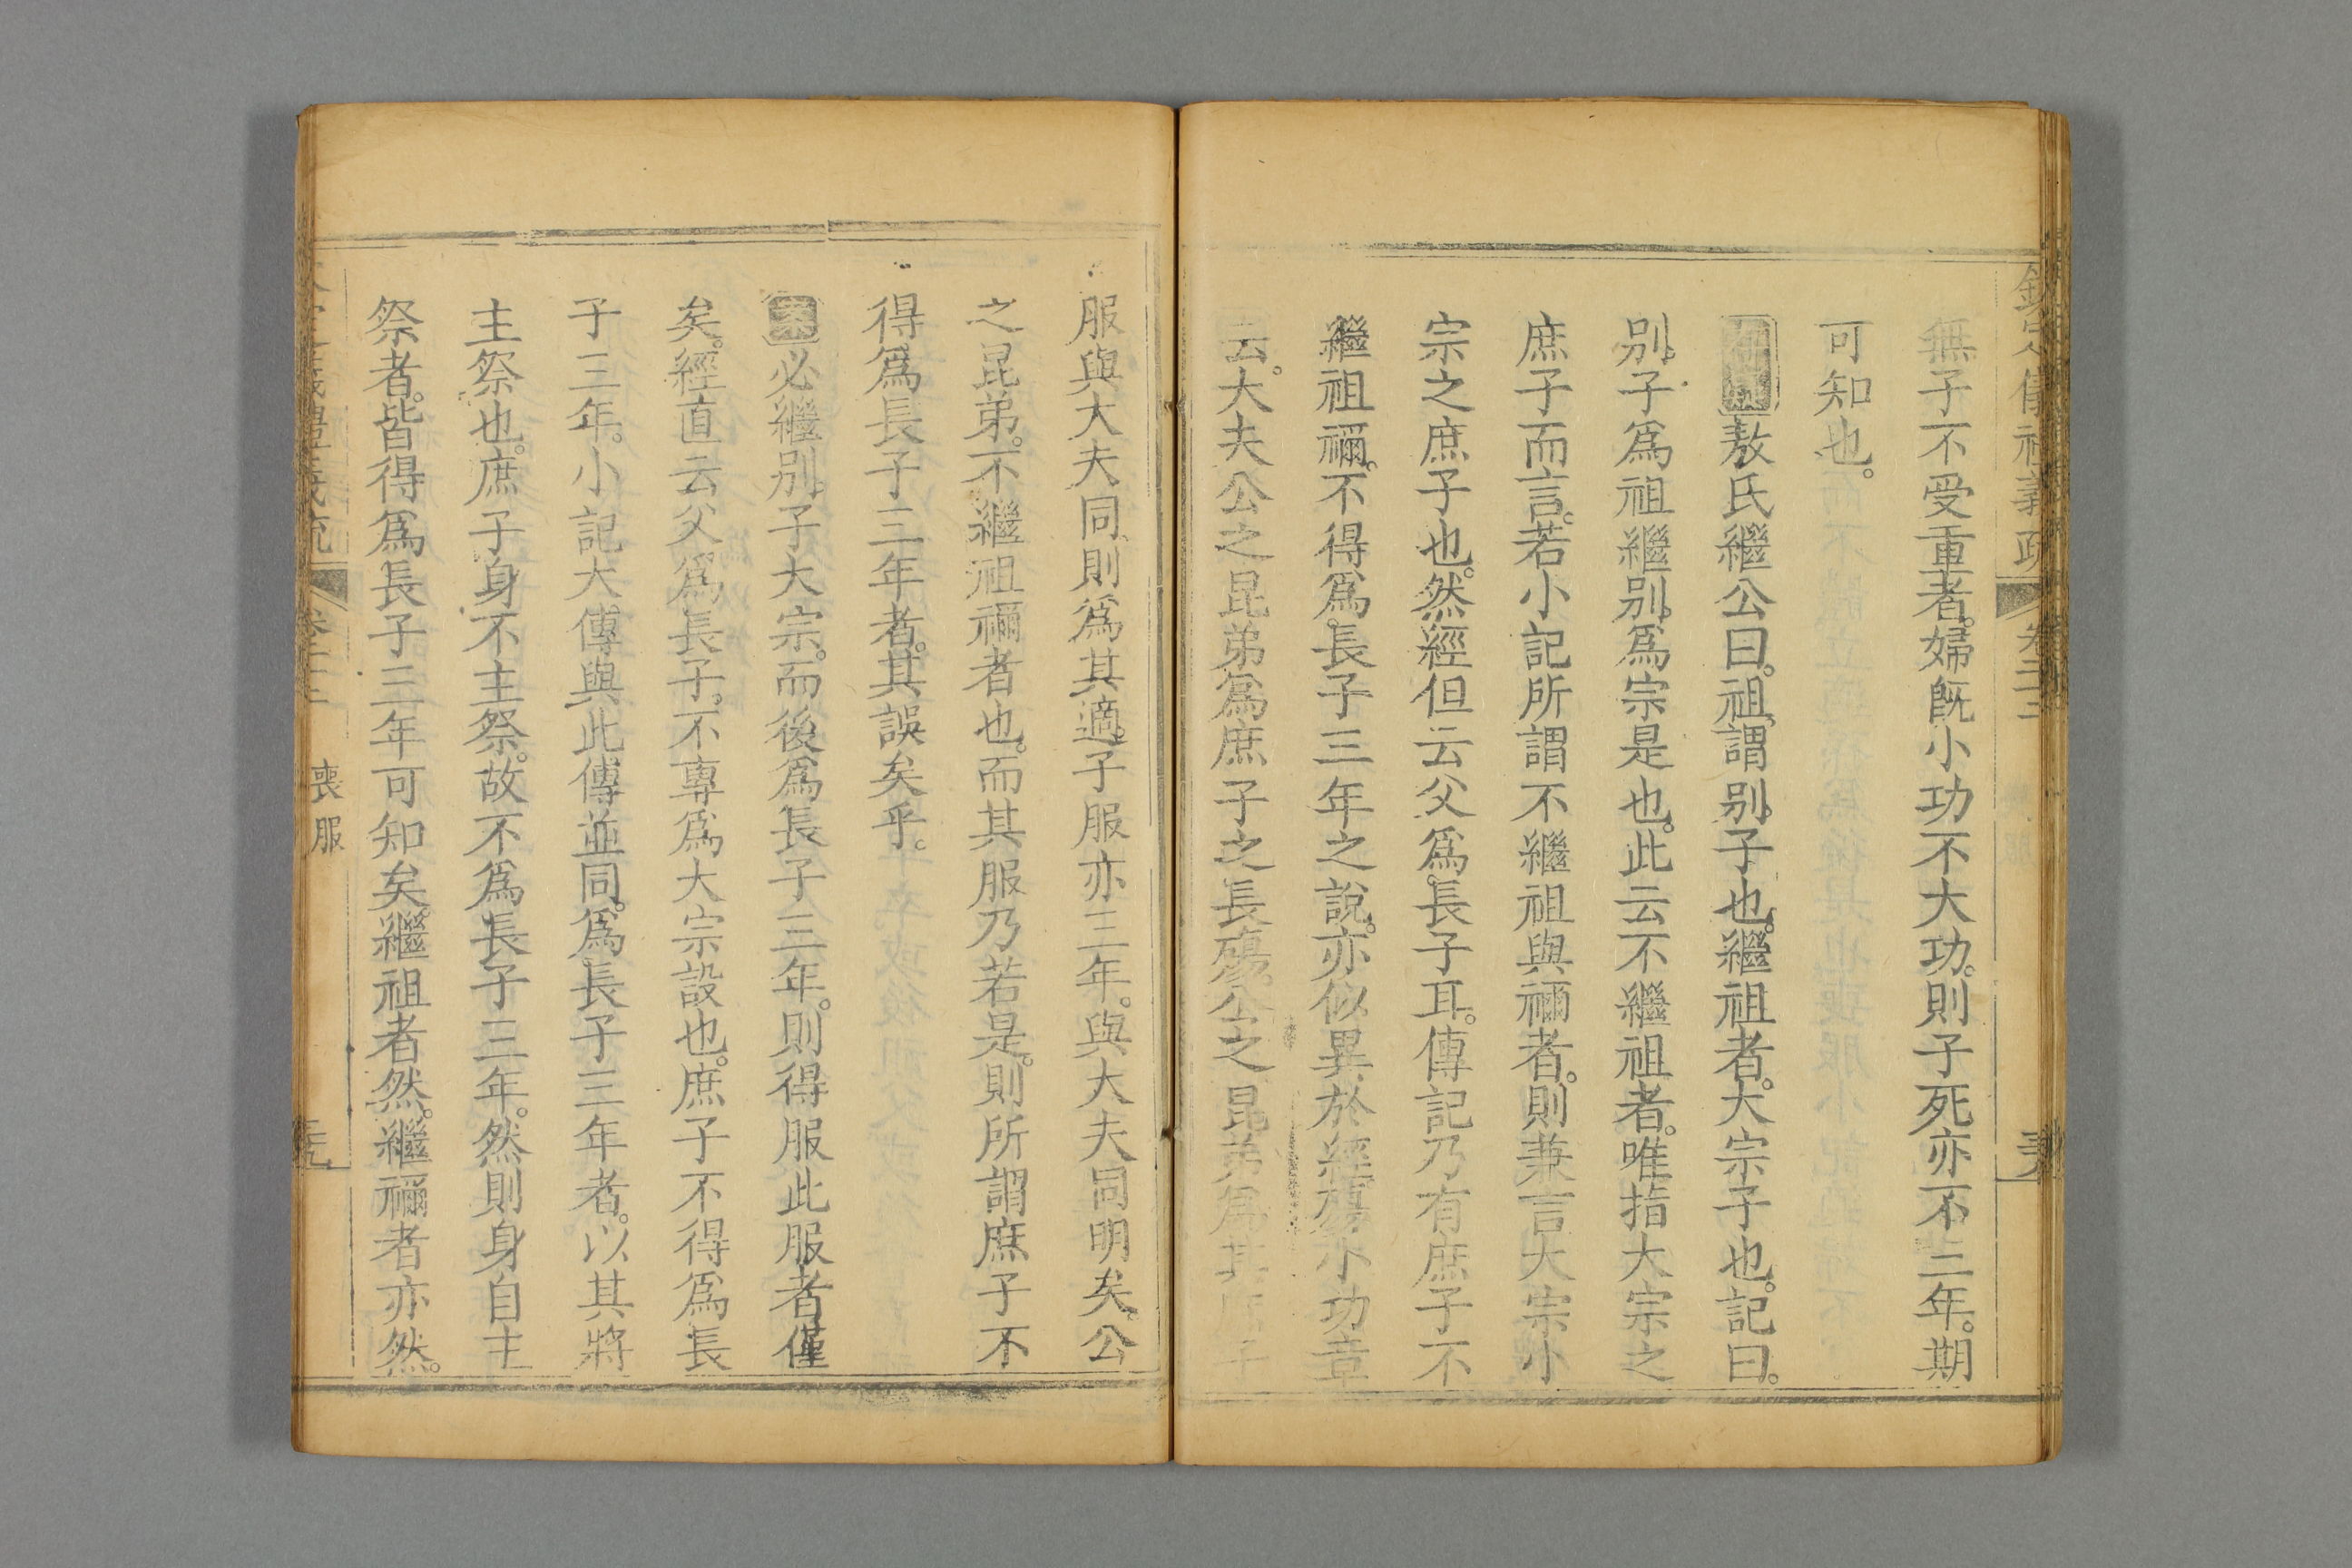 欽定儀禮義疏 卷二十二
無子不受重者。婦既小功不大功。則子死亦不三年。期
可知也。
敖氏繼公曰。祖。謂别子也。繼祖者。大宗子也。記曰。
别子爲祖繼别爲宗是也。此云不繼祖者。唯指大宗之
庶子而言。若小記所謂不繼祖與禰者。則兼言大宗小
宗之庶子也。然經但云父爲長子耳。傳記乃有庶子不
繼祖禰。不得爲長子三年之說。亦似異於經殤小功章
云。大夫公之昆弟爲庶子之長殤。公之昆弟爲其庶子
服與大夫同則爲其適子服亦三年。與大夫同明矣。公
之昆弟。不繼祖禰者也。而其服乃若是。則所謂庶子不
得爲長子三年者。其誤矣乎。
案必繼别子大宗。而後爲長子三年。則得服此服者僅
矣。經直云父爲長子。不專爲大宗設也。庶子不得爲長
子三年。小記大傳與此傳並同。爲長子三年者。以其將
主祭也。庶子身不主祭。故不爲長子三年。然則身自主
祭者。皆得爲長子三年可知矣。繼祖者然。繼禰者亦然。
喪服